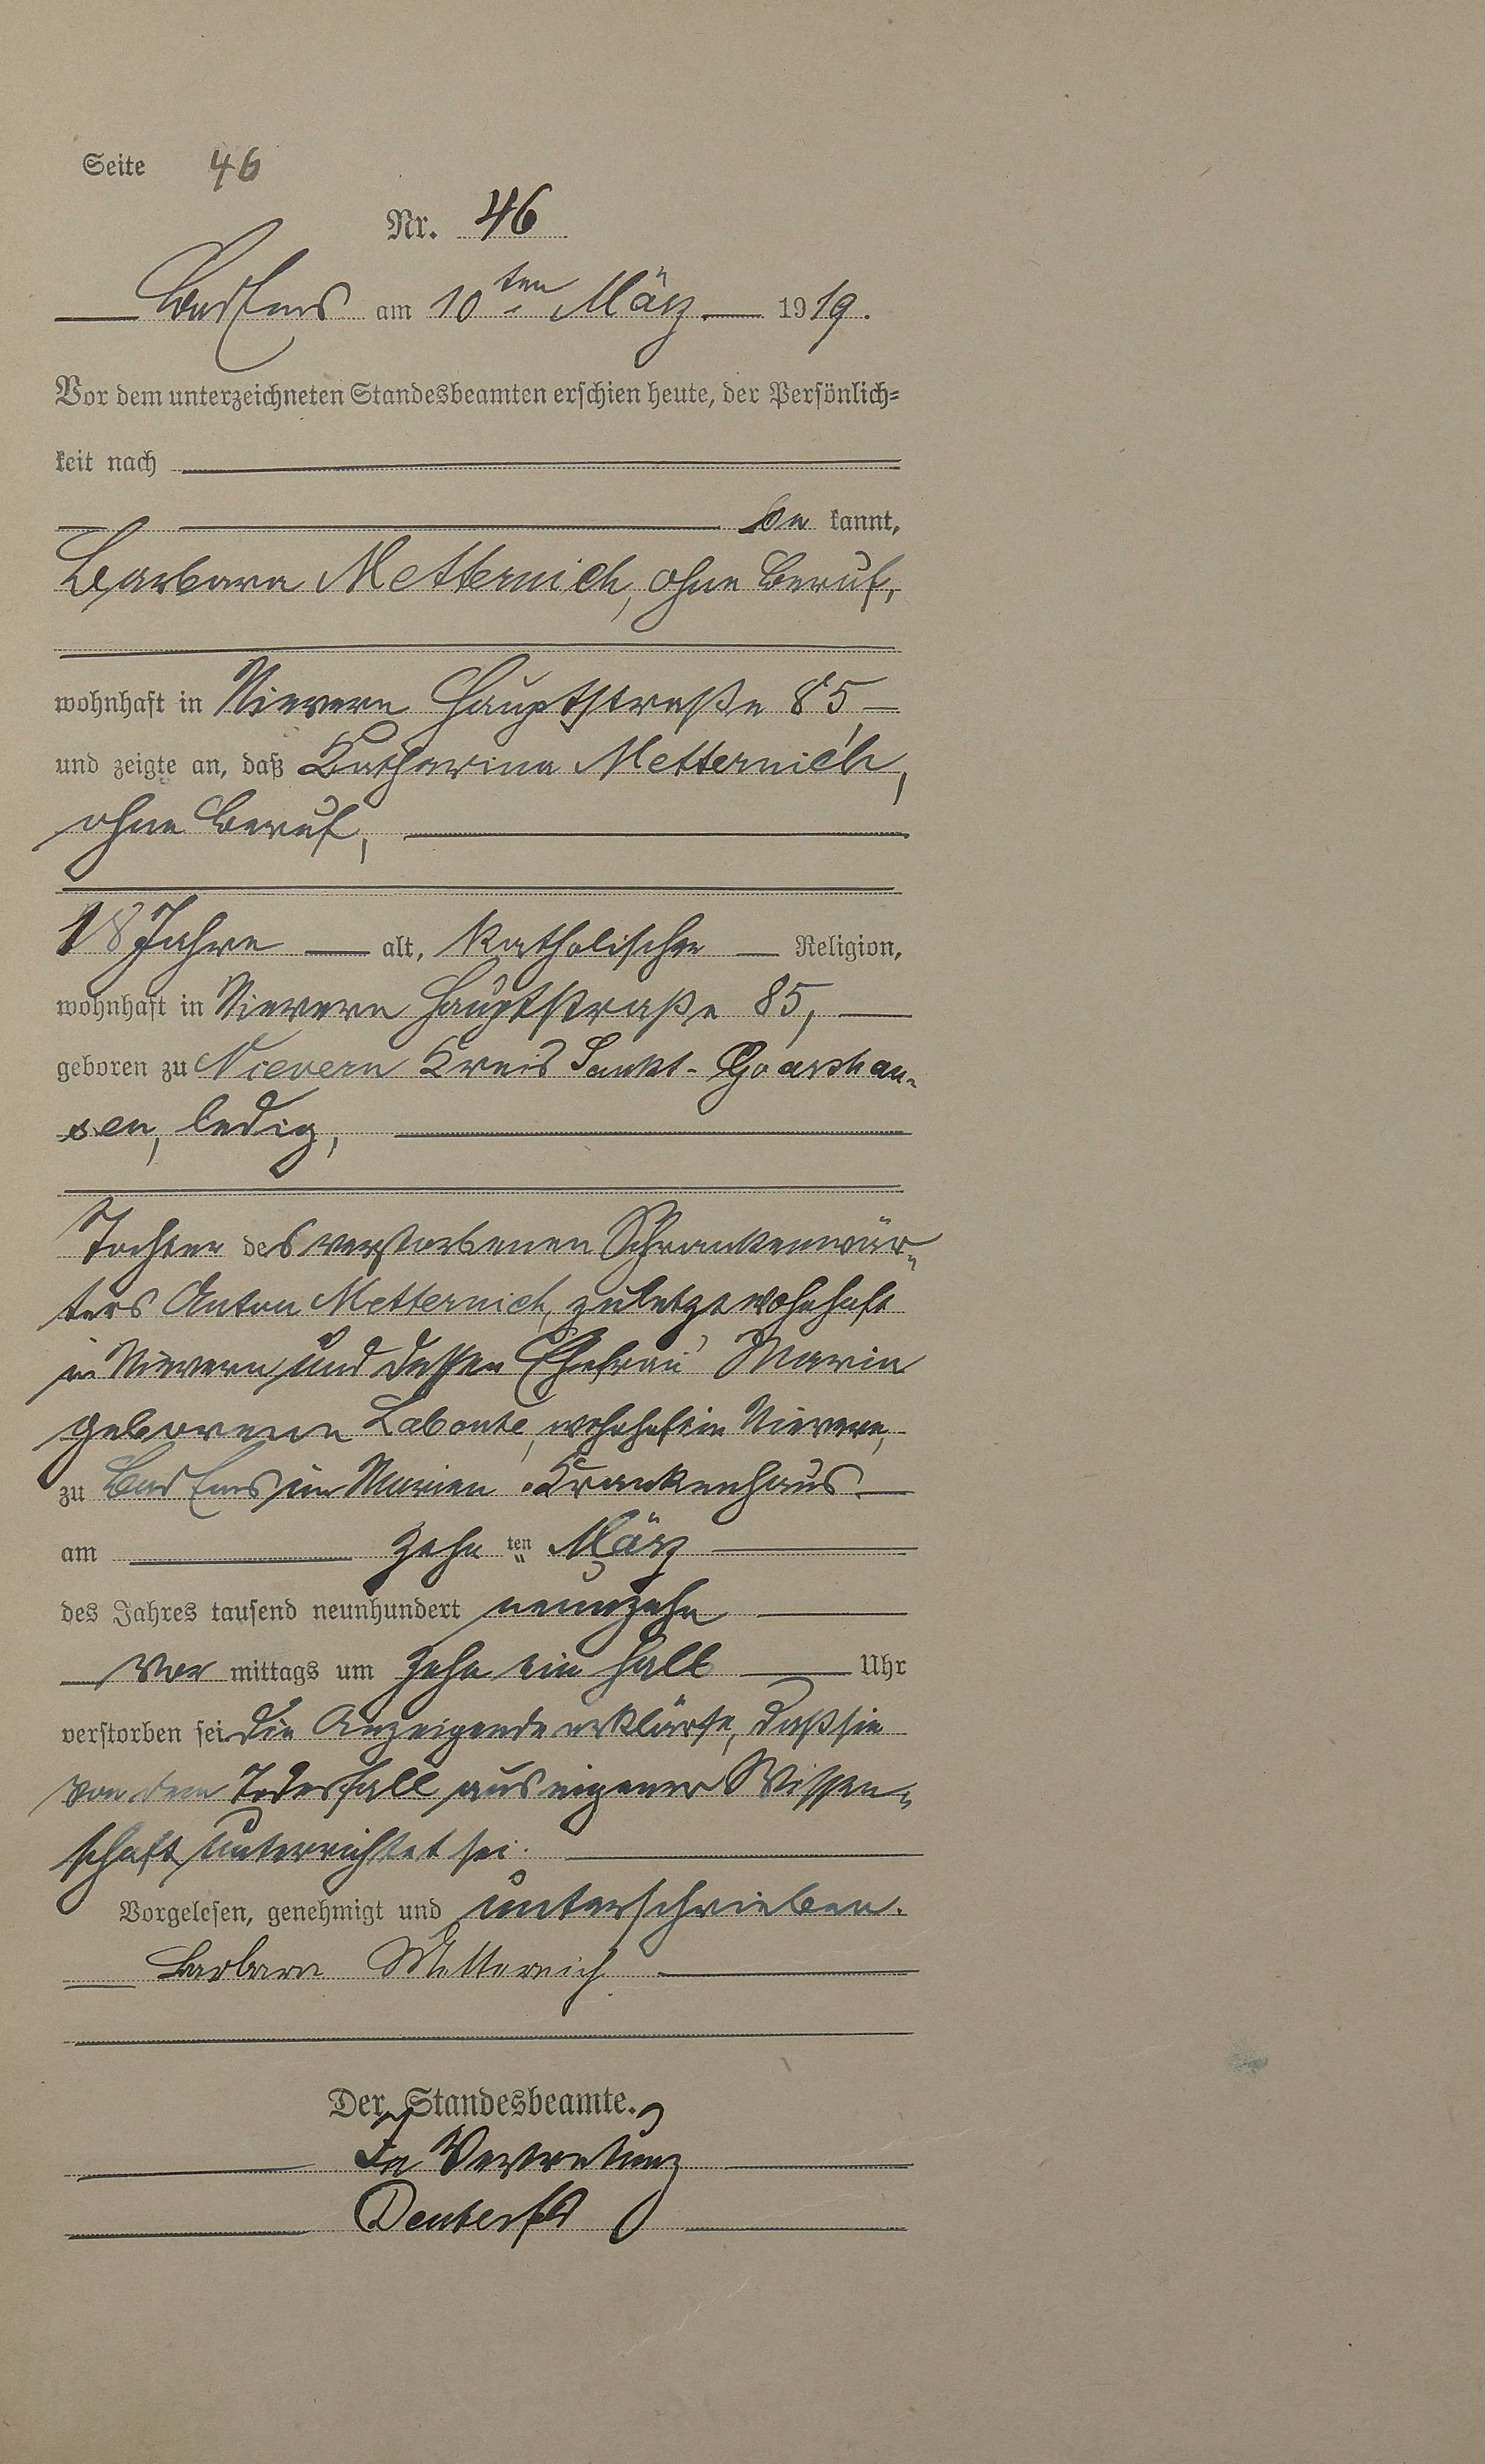 Seite 46
Nr. 46
Bad Ems am 10ten März 1919.
Vor dem unterzeichneten Standesbeamten erschien heute, der Persönlich=
keit nach
be kannt,
Barbara Metternich, ohne Beruf,
wohnhaft in Nievern Hauptstraße 85,
und zeigte an, daß Katharina Metternich,
ohne Beruf,
18 Jahre alt, katholischer Religion,
wohnhaft in Nievern Hauptstraße 85,
geboren zu Nievern Kreis Sankt-Goarshau-
sen, ledig,
Tochter des verstorbenen Schrankenwär-
ters Anton Metternich, zuletzt wohnhaft
in Nievern und dessen Ehefrau Maria
geborene Labonte, wohnhaft in Nievern,
zu Bad Ems im Marien-Krankenhaus
am zehnten März
des Jahres tausend neunhundert neunzehn
Vor mittags um zehn ein halb Uhr
verstorben sei. Die Anzeigende erklärte, daß sie
von dem Todesfall aus eigener Wissen-
schaft unterrichtet sei.
Vorgelesen, genehmigt und unterschrieben.
Barbara Metternich
Der Standesbeamte.
In Vertretung